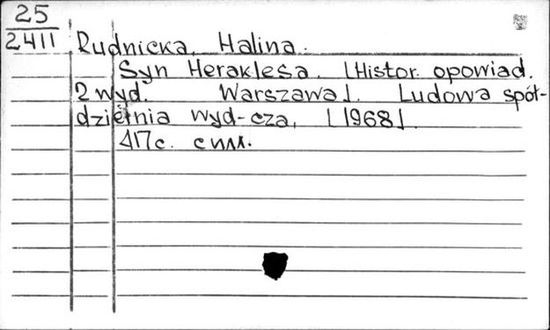 25
2411
Rudnicka, Halina.
Syn Heraklesa. [Histor. opowiad.
2 wyd. Warszawa]. Ludowa spół-
dzielnia wyd-cza, [1968].
417 с. с илл.